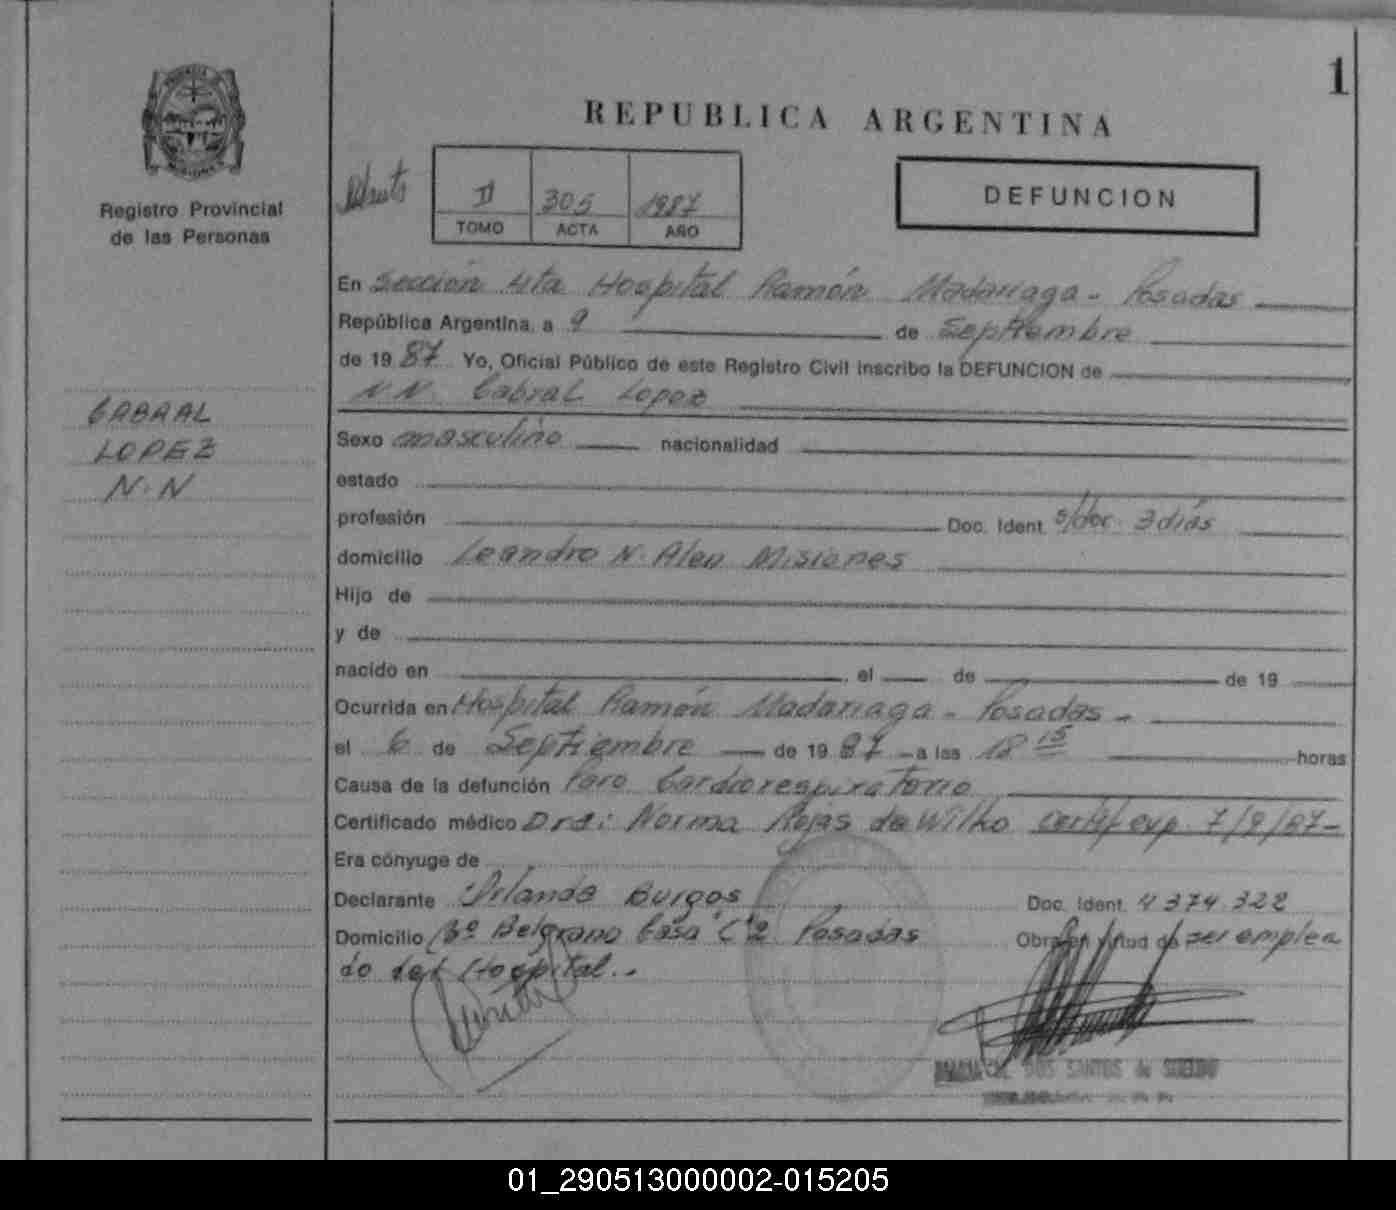 1
REPUBLICA ARGENTINA
Registro Provincial
de las Personas
II 305 1987
TOMO ACTA AÑO
DEFUNCION
En Sección 4ta Hospital Ramón Madariaga - Posadas
República Argentina, a 9 de Septiembre
de 19 87 Yo, Oficial Público de este Registro Civil inscribo la DEFUNCION de
N.N. Cabral Lopez
CABRAL
LOPEZ
N.N
Sexo masculino nacionalidad
estado
profesión Doc. Ident. s/doc. 3 días
domicilio Leandro N. Alen Misiones
Hijo de
y de
nacido en , el de de 19
Ocurrida en Hospital Ramón Madariaga - Posadas -
el 6 de Septiembre de 19 87 a las 18 15 horas
Causa de la defunción Paro Cardiorespiratorio
Certificado médico Dra: Norma Rojas de Wilko certif exp. 7/9/87-
Era cónyuge de
Declarante Burgos Doc. Ident. 4 374.322
Domicilio Bº Belgrano Casa C 2 Posadas Obra en virtud de ser emplea
do del Hospital..
DOS SANTOS de
01_290513000002-015205